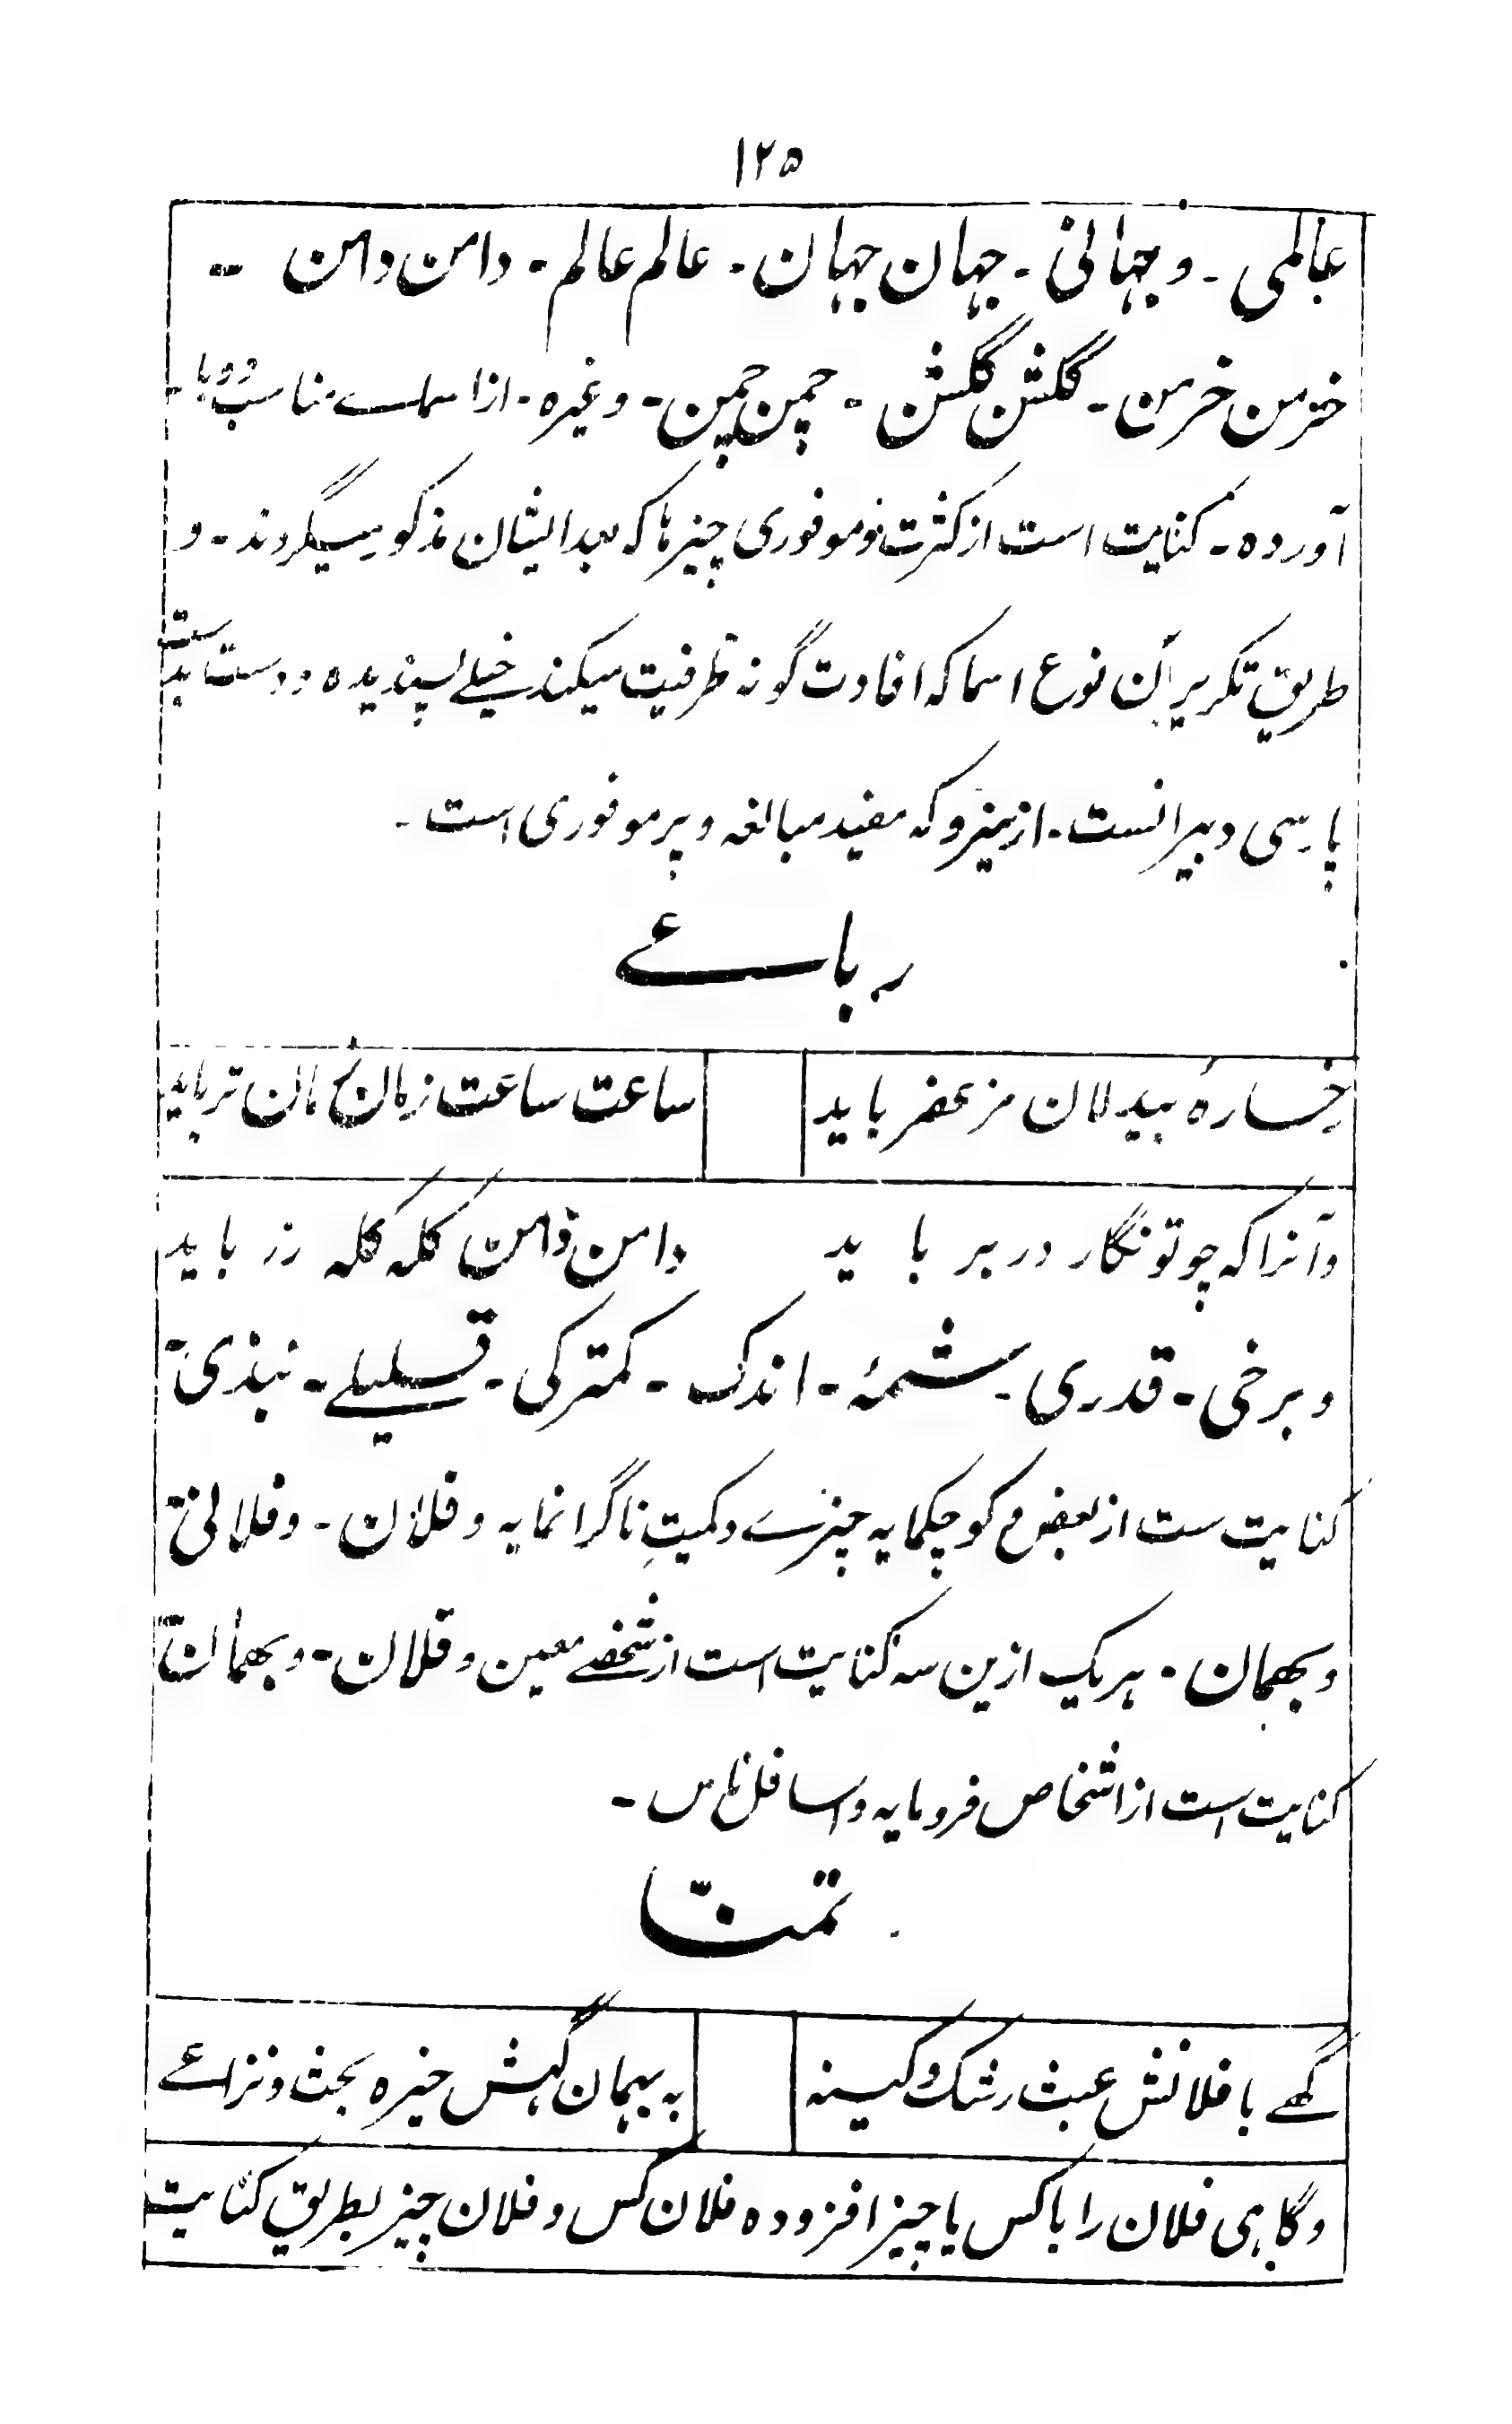 ۱۲۵
عالمی - و جهانی - جهان جهان - عالم عالم - دامن دامن -
خرمن خرمن - گلشن گلشن - چمن چمن - و غیره - از اسماے مناسب دوبار
آورده - کنایت است از کثرت و موفوری چیزها که بعد ایشان مذکور میگردند - و
طریق تکریر آن نوع اسما که افادت گونه ظرفیت میکند خیلے پسندیده و دست
پارسی دبیرانست - ازینرو که مفید مبالغه و پرموفوری است -
رباعے
رخسارهٔ بیدلان مزعفر باید
ساعت ساعت زمان زمان تر باید
وآنرا که چو تو نگار در بر باید
دامن دامن کله کله زر باید
و برخی - قدری - شمهٔ - اندک - کمترکی - قلیلے - نبذی
کنایت ست از بعض و کوچکمایه چیزے و کمیتِ ناگرانمایه و فلان - و فلانی
و بهمان - هریک ازین سه کنایت است از شخصے معین و فلان - و بهمان
کنایت است از اشخاص فرومایه و اسافل ناس -
تمنّا
گهے با فلانش عبث رشک و کینه
به بهمان گهش خیره بحث و نزاعے
و گاهی فلان را با کس یا چیز افزوده فلان کس و فلان چیز بطریق کنایت